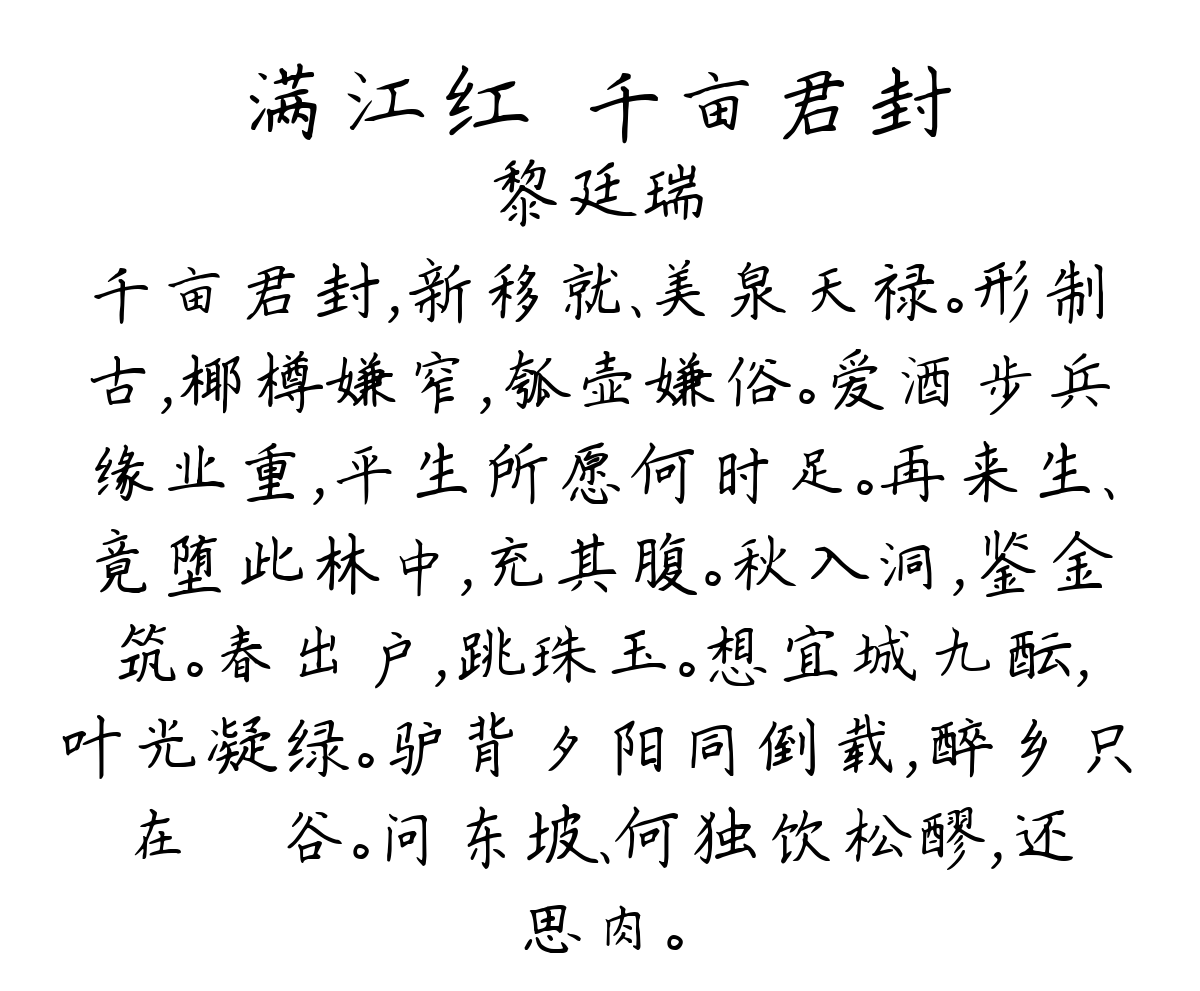 满江红 千亩君封
黎廷瑞
千亩君封,新移就、美泉天禄。形制
古,椰樽嫌窄,瓠壶嫌俗。爱酒步兵
缘业重,平生所愿何时足。再来生、
竟堕此林中,充其腹。秋入洞,鉴金
筑。春出户,跳珠玉。想宜城九酝,
叶光凝绿。驴背夕阳同倒载,醉乡只
在 谷。问东坡、何独饮松醪,还
思肉。